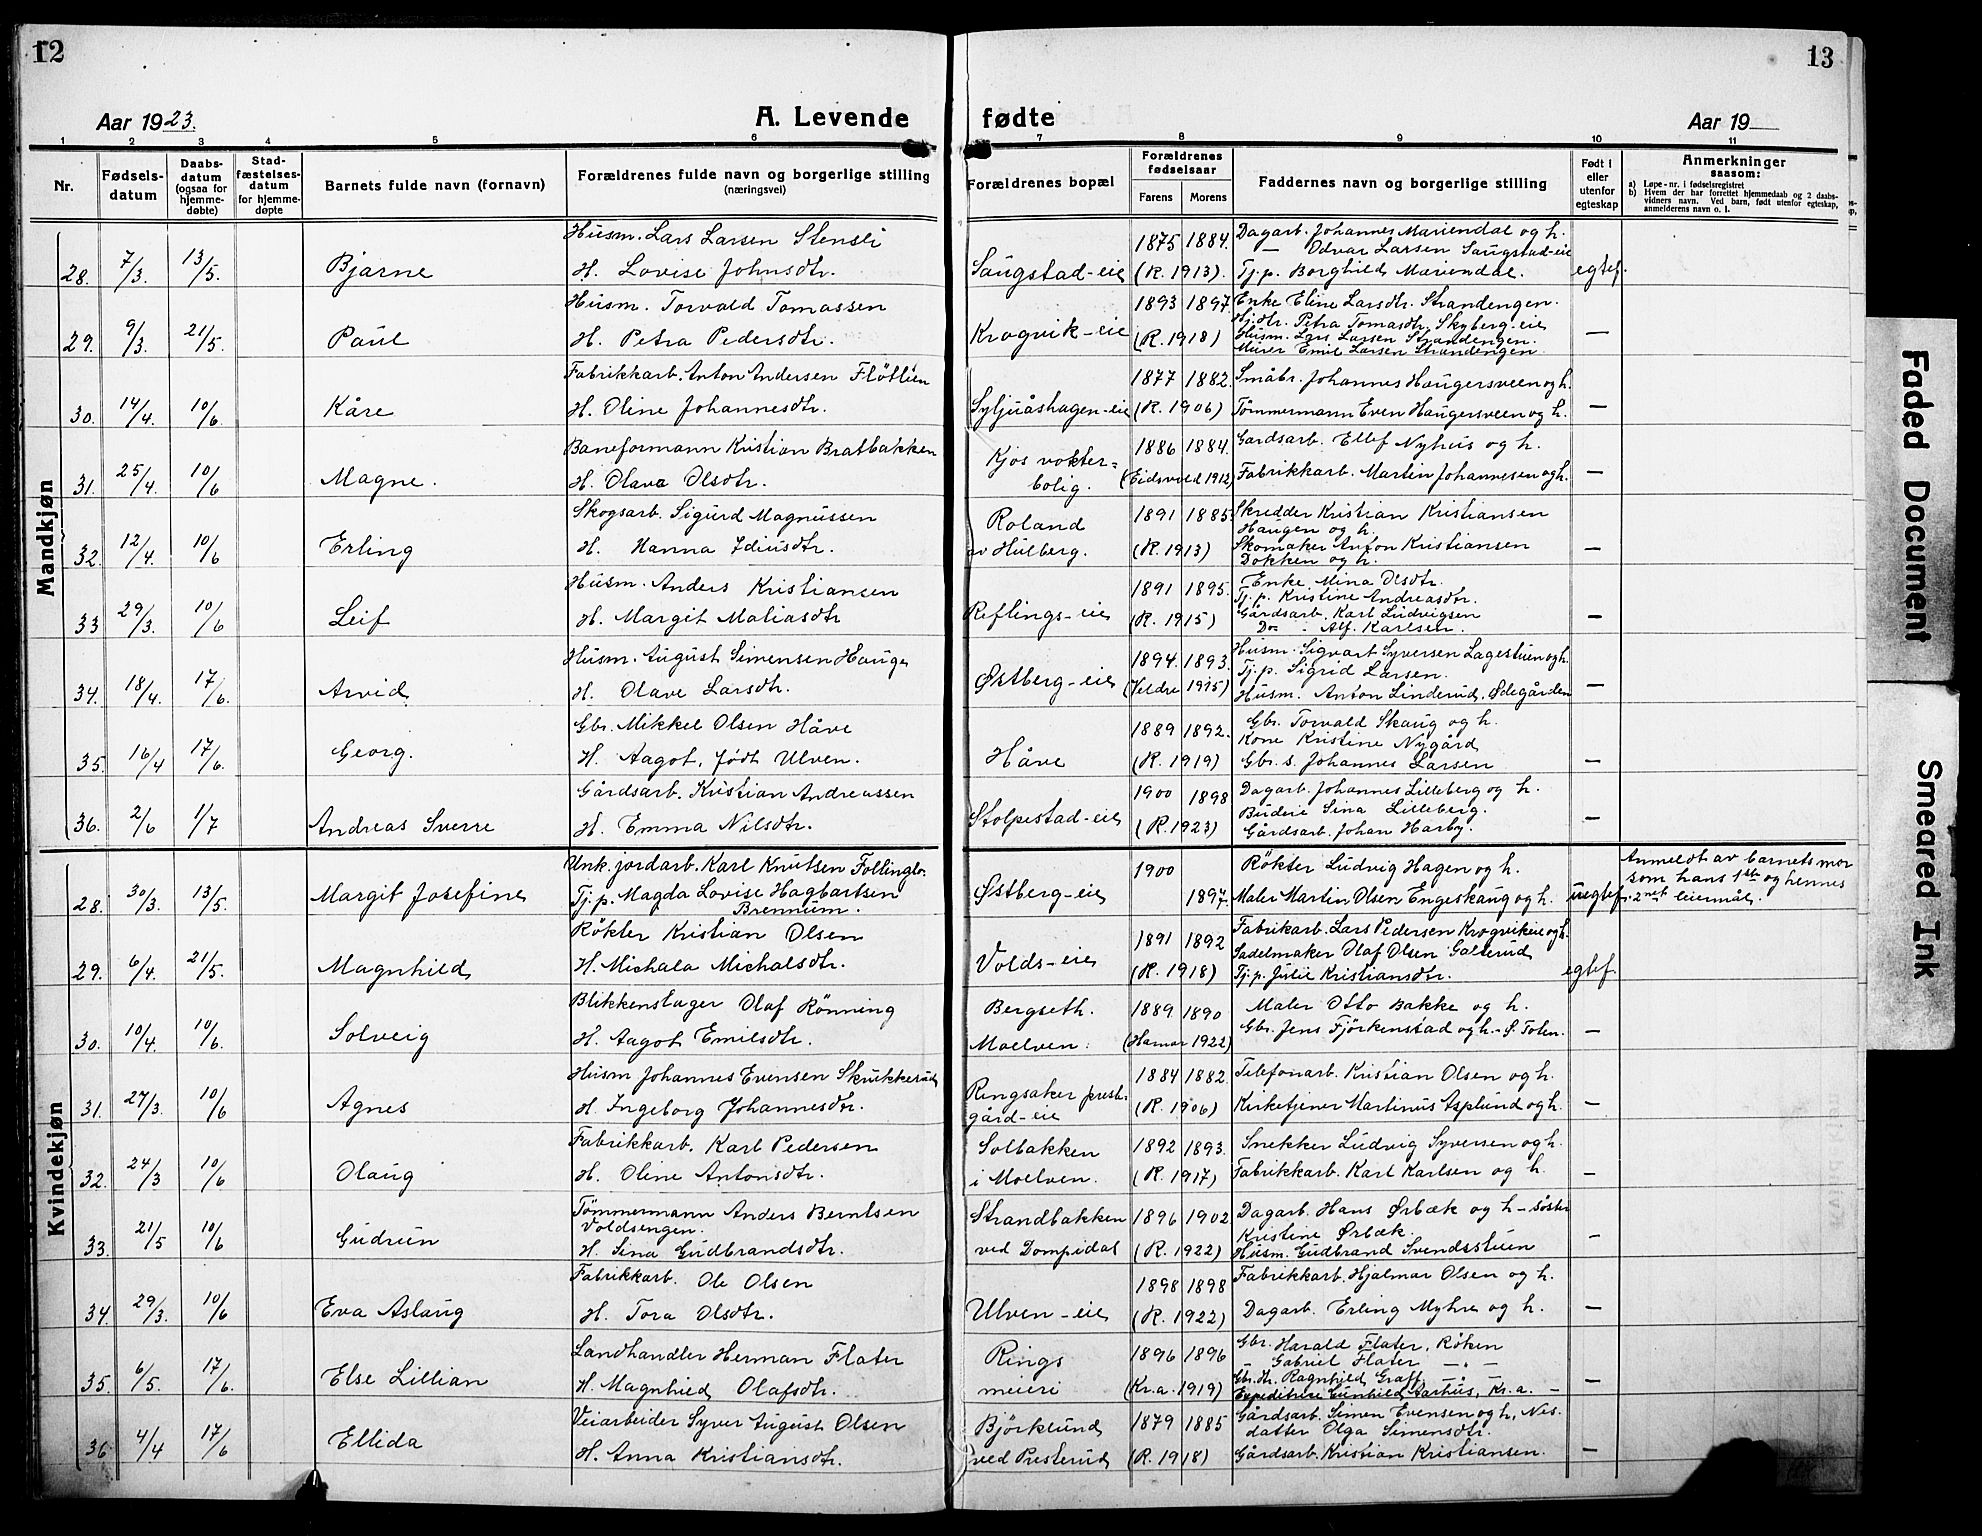 12
Aar 1923.
A. Levende
1 2 3 4 5 6
Nr.
Fødsels-
datum
Daabs-
datum
(ogsaa for
hjemme-
døbte)
Stad-
fæstelses-
datum
for hjemme-
døpte
Barnets fulde navn (fornavn)
Forældrenes fulde navn og borgerlige stilling
(næringsvei)
Mandkjøn
28. 7/3 13/5. Bjarne
Husm. Lars Larsen Stensli
H. Lovise Johnsdtr.
29. 9/3 21/5. Paul
Husm. Torvald Tomassen
H. Petra Pedersdtr.
30. 14/4. 10/6. Kåre
Fabrikkarb. Anton Andersen Fløtlien
H. Oline Johannesdtr.
31. 25/4. 10/6 Magne.
Baneformann Kristian Bratbakken
H. Olava Olsdtr.
32. 12/4. 10/6 Erling
Skogsarb. Sigurd Magnussen
H. Hanna Idiusdtr.
33 29/3. 10/6 Leif
Husm. Anders Kristiansen
H. Margit Matiasdtr
34. 18/4. 17/6. Arvid
Husm. August Simensen Hauge
H. Olave Larsdtr.
35. 16/4 17/6. Georg.
Gbr. Mikkel Olsen Håve
H. Aagot, født Ulven.
36. 2/6 1/7 Andreas Sverre
Gårdsarb. Kristian Andreassen
H. Emma Nilsdtr.
Kvindekjøn
28. 30/3. 13/5. Margit Josefine
Unk. jordarb. Karl Knutsen Follinglo.
Tj.p. Magda Lovise Hagbartsen
Brennum.
29. 6/4. 21/5. Magnhild
Røkter Kristian Olsen
H. Michala Michalsdtr.
30. 10/4. 10/6. Solveig
Blikkenslager Olaf Rönning
H. Aagot Emilsdtr.
31. 27/3. 10/6 Agnes
Husm Johannes Evensen Skrukkerud
H. Ingeborg Johannesdtr.
32. 24/3 10/6 Olaug
Fabrikkarb. Karl Pedersen
H. Oline Antonsdtr.
33. 21/5 10/6 Gudrun
Tömmermann Anders Berntsen
Voldsengen.
H. Sina Gudbrandsdtr.
34. 29/3. 10/6 Eva Aslaug
Fabrikkarb. Ole Olsen
H. Tora Olsdtr.
35. 6/5. 17/6. Else Lillian
Landhandler Herman Flater
H. Magnhild Olafsdtr.
36 4/4 17/6 Ellida
Veiarbeider Syver August Olsen
H. Anna Kristiansdtr.
13
fødte
Aar 19
7 8 9 10 11
Forældrenes bopæl
Forældrenes
fødselsaar
Farens Morens
Faddernes navn og borgerlige stilling
Født i
eller
utenfor
egteskap
Anmerkninger
saasom:
a) Løpe-nr. i fødselsregistret
b) Hvem der har forrettet hjemmedaab og 2 daabs-
vidners navn. Ved barn, født utenfor egteskap,
anmelderens navn o. l.
Saugstad-eie
1875 1884.
(R. 1913).
Dagarb. Johannes Mariendal og h.
— Odvar Larsen Saugstad-eie
Tj.p. Borghild Mariendal.
egtef.
Krogvik-eie
1893 1897.
(R. 1918)
Enke Eline Larsdtr. Strandengen.
Hj.dtr. Petra Tomasdtr. Skyberg-eie
Husm. Lars Larsen Strandengen.
Murer Emil Larsen Strandengen.
—
Syljuåshagen-eie
1877 1882.
(R. 1906)
Småbr. Johannes Haugersveen og h.
Tömmermann Even Haugersveen og h.
—
Kjos vokter=
bolig.
1886 1884.
(Eidsvold 1912)
Gardsarb. Ellef Nyhus og h.
Fabrikkarb. Martin Johannesen og h.
—
Roland
av Hulberg.
1891 1885.
(R. 1913)
Skredder Kristian Kristiansen
Haugen og h.
Skomaker Anton Kristiansen
Dokken og h.
—
Reflings-eie
1891 1895.
(R. 1915)
Enke Mina Olsdtr.
Tj.p. Kristine Andreasdtr.
Gårdsarb. Karl Ludvigsen
Do- Alf Karlsen.
—
Østberg-eie
1894. 1893.
(Veldre 1915)
Husm. Sigvart Syversen Lagestuen og h.
Tj.p. Sigrid Larsen.
Husm. Anton Linderud, Ødegården
—
Håve
1889 1892.
(R. 1919)
Gbr. Torvald Skaug og h.
Kone Kristine Nygård
Gbr. s. Johannes Larsen
—
Stolpestad-eie
1900 1898
(R. 1923)
Dagarb. Johannes Lilleberg og h.
Budeie Sina Lilleberg.
Gårdsarb. Johan Harby.
—
Østberg-eie
1900
1897.
Røkter Ludvig Hagen og h.
Maler Martin Olsen Engeskaug og h.
uegtef.
Anmeldt av barnets mor
som hans 1ste og hennes
2net leiermål.
Volds-eie
1891 1892
(R. 1918)
Fabrikarb. Lars Pedersen Krogvikeie og h.
Sadelmaker Olaf Olsen Galterud
Tj.p. Julie Kristiansdtr.
egtef.
Bergseth.
Moelven.
1889 1890
(Hamar 1922)
Maler Otto Bakke og h.
Gbr. Jens Fjörkenstad og h.- Ø. Toten.
—
Ringsaker prest-
gård-eie
1884 1882.
(R. 1906)
Telefonarb. Kristian Olsen og h.
Kirketjener Martinus Asplund og h.
—
Solbakken
i Moelven.
1892 1893.
(R. 1917)
Snekker Ludvig Syversen og h.
Fabrikkarb. Karl Karlsen og h.
—
Strandbakken
ved Dompidal
1896 1902
(R. 1922)
Dagarb. Hans Ørbæk og h - söster
Kristine Ørbæk.
Husm. Gudbrand Svendsstuen
—
Ulven-eie
1898 1898
(R. 1922)
Fabrikkarb. Hjalmar Olsen og h.
Dagarb. Erling Myhre og h.
—
Rings
meieri
1896 1896
(Kr.a. 1919)
Gbr. Harald Flater, Röken
- Gabriel Flater — " —
Gbr.dtr. Ragnhild Graff — " —
Expeditrise Gunhild Aarhus, Kr.a. —
—
Björklund
ved Presterud
1879 1885
(R. 1918)
Gårdsarb. Simen Evensen og h, Nes.
datter Olga Simensdtr.
Gårdsarb. Kristian Kristiansen.
—
Faded Document
Smeared Ink